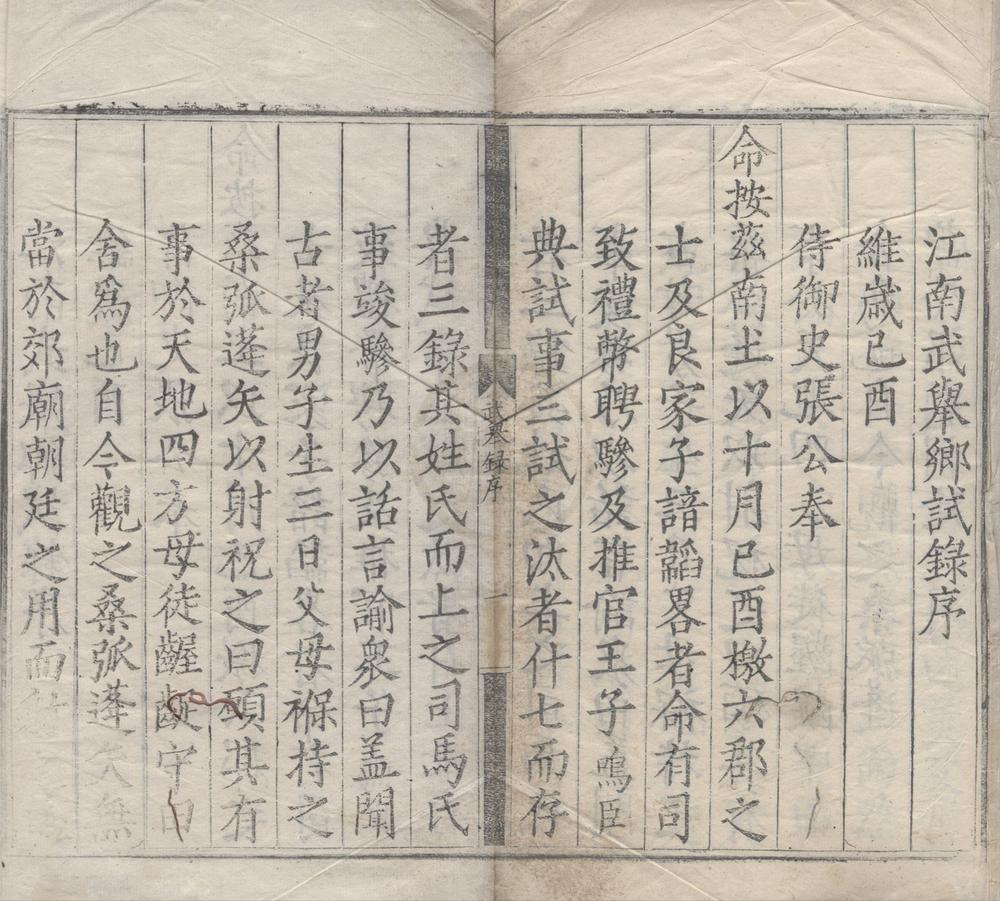 江南武舉鄉試錄序
維歲己酉
侍御史張公奉
命按茲南土以十月己酉檄六郡之
士及良家子諳韜畧者命有司
致禮幣聘驂及推官王子鳴臣
典試事三試之汰者什七而存
武舉錄序
一
者三錄其姓氏而上之司馬氏
事竣驂乃以話言諭衆曰盖聞
古者男子生三日父母褓持之
桑弧蓬矢以射祝之曰願其有
事於天地四方毋徒齷齪守
舍爲也自今觀之桑弧蓬矢無
當於郊廟朝廷之用而